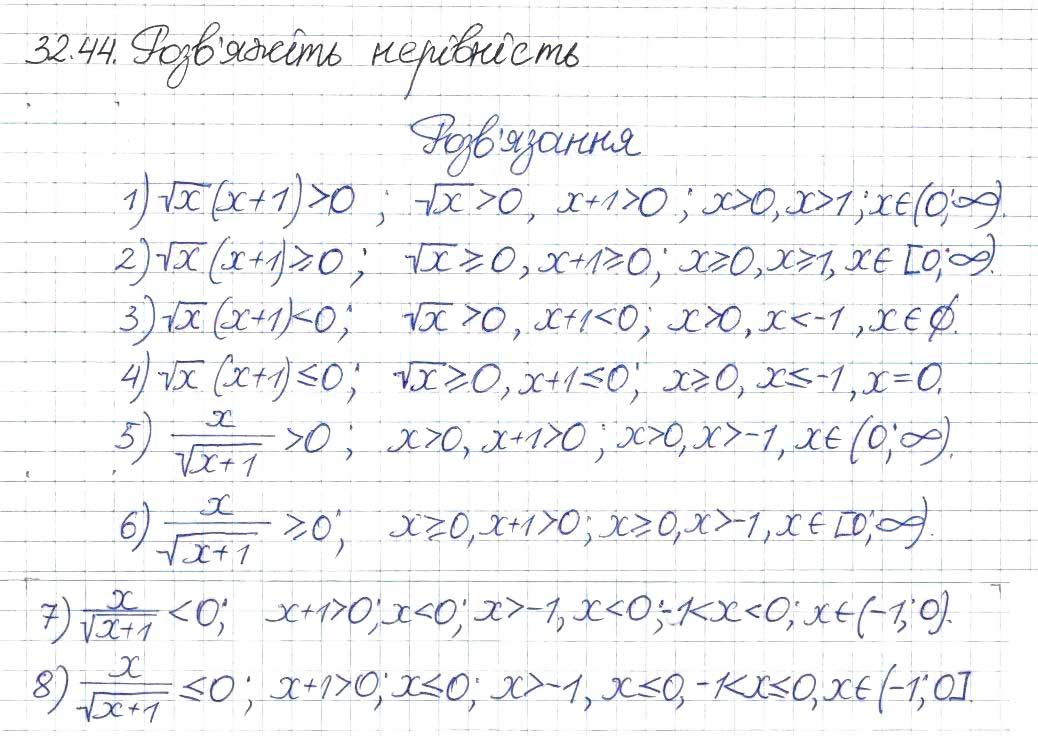 32.44. Розв'яжіть нерівність
Розв'язання
1) √x (x+1)>0 ; √x >0, x+1>0 ; x>0, x>1 ; x∈(0;∞).
2) √x (x+1)≥0 ; √x ≥0, x+1≥0; x≥0, x≥1, x∈ [0;∞).
3) √x (x+1)<0; √x >0, x+1<0; x>0, x<-1, x∈∅.
4) √x (x+1)≤0; √x ≥0, x+1≤0; x≥0, x≤-1, x=0.
5) x/√(x+1) >0 ; x>0, x+1>0 ; x>0, x>-1, x∈(0;∞).
6) x/√(x+1) ≥0; x≥0, x+1>0; x≥0, x>-1, x∈[0;∞).
7) x/√(x+1) <0; x+1>0; x<0; x>-1, x<0; -1<x<0; x∈(-1;0).
8) x/√(x+1) ≤0 ; x+1>0; x≤0; x>-1, x≤0, -1<x≤0, x∈(-1;0].